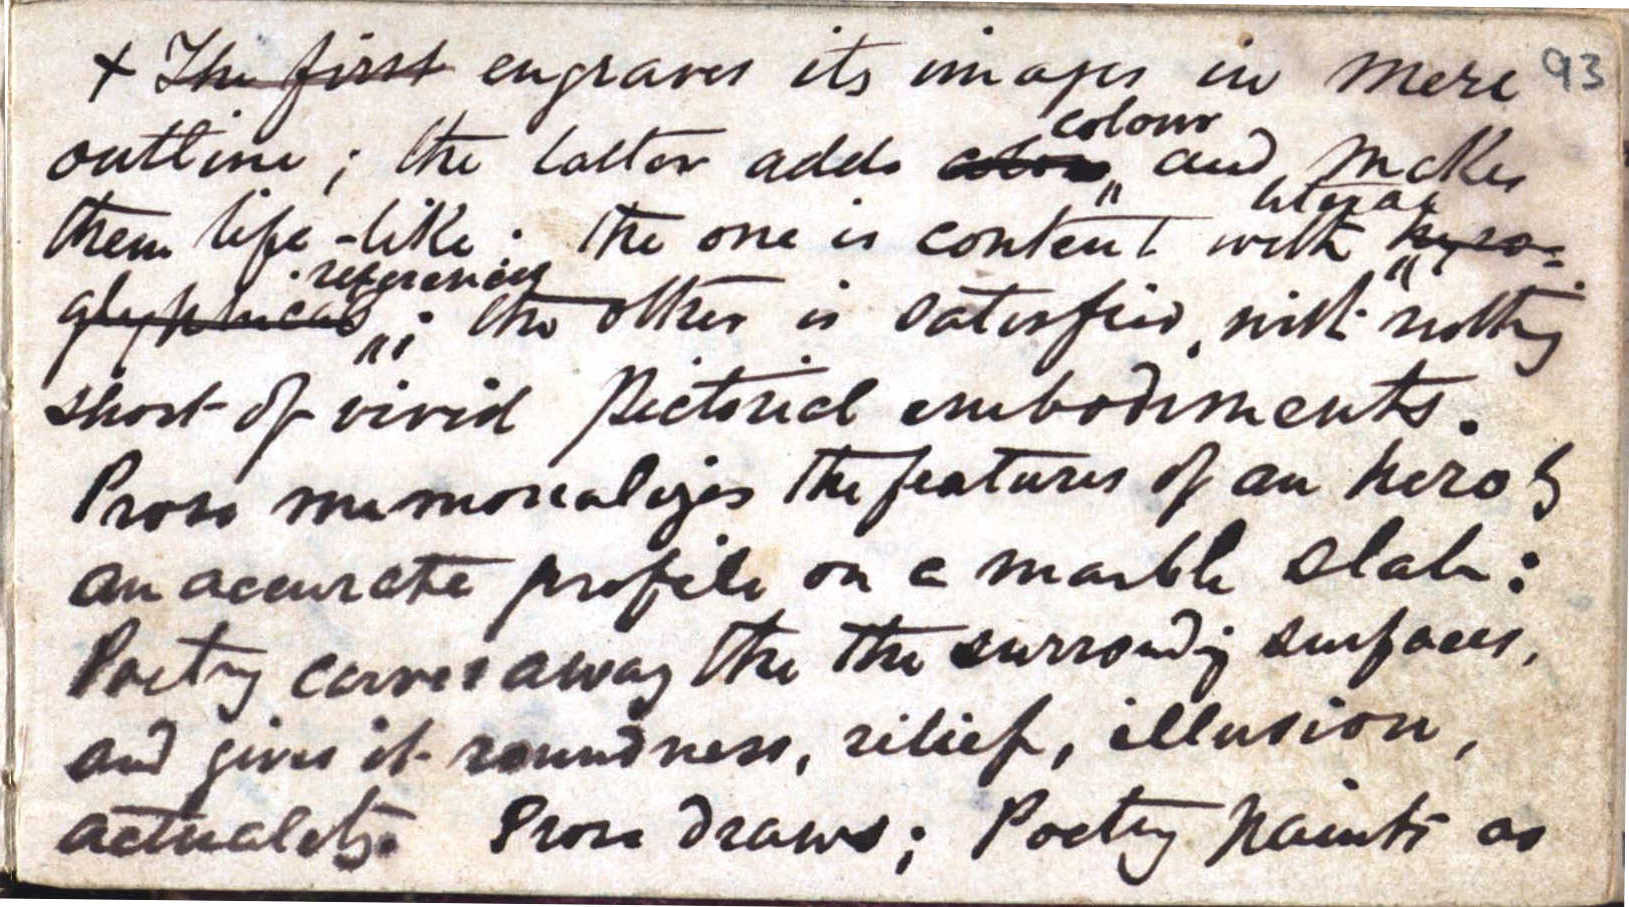 + The first engraves its images in mere 93
outline; the latter adds color colour and makes
them life-like. The one is content with literal hyro=
glyphical references; the other is satisfied, with nothing
short of vivid Pictorial embodiments.
Prose memorializes the features of an hero by
an accurate profile on a marble slab:
Poetry carves away the the surrounding surfaces,
and gives it roundness, relief, illusion,
actuality. Prose draws; Poetry paints as